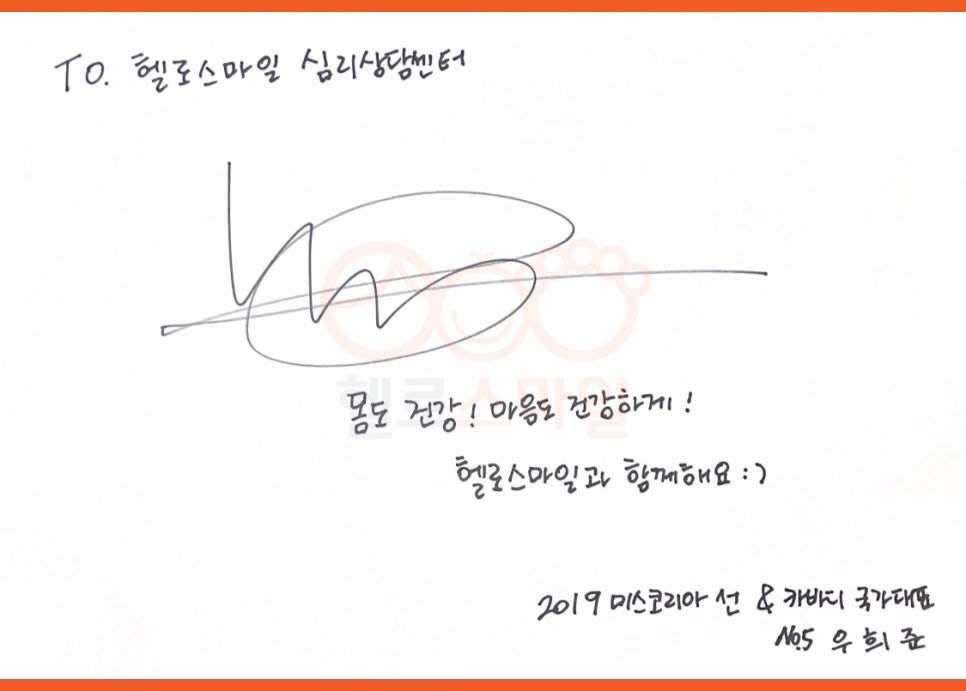 TO. 헬로스마일 심리상담센터
헬로스마일
몸도 건강! 마음도 건강하게!
헬로스마일과 함께해요 :)
2019 미스코리아 선 & 카바디 국가대표
No.5 우희준